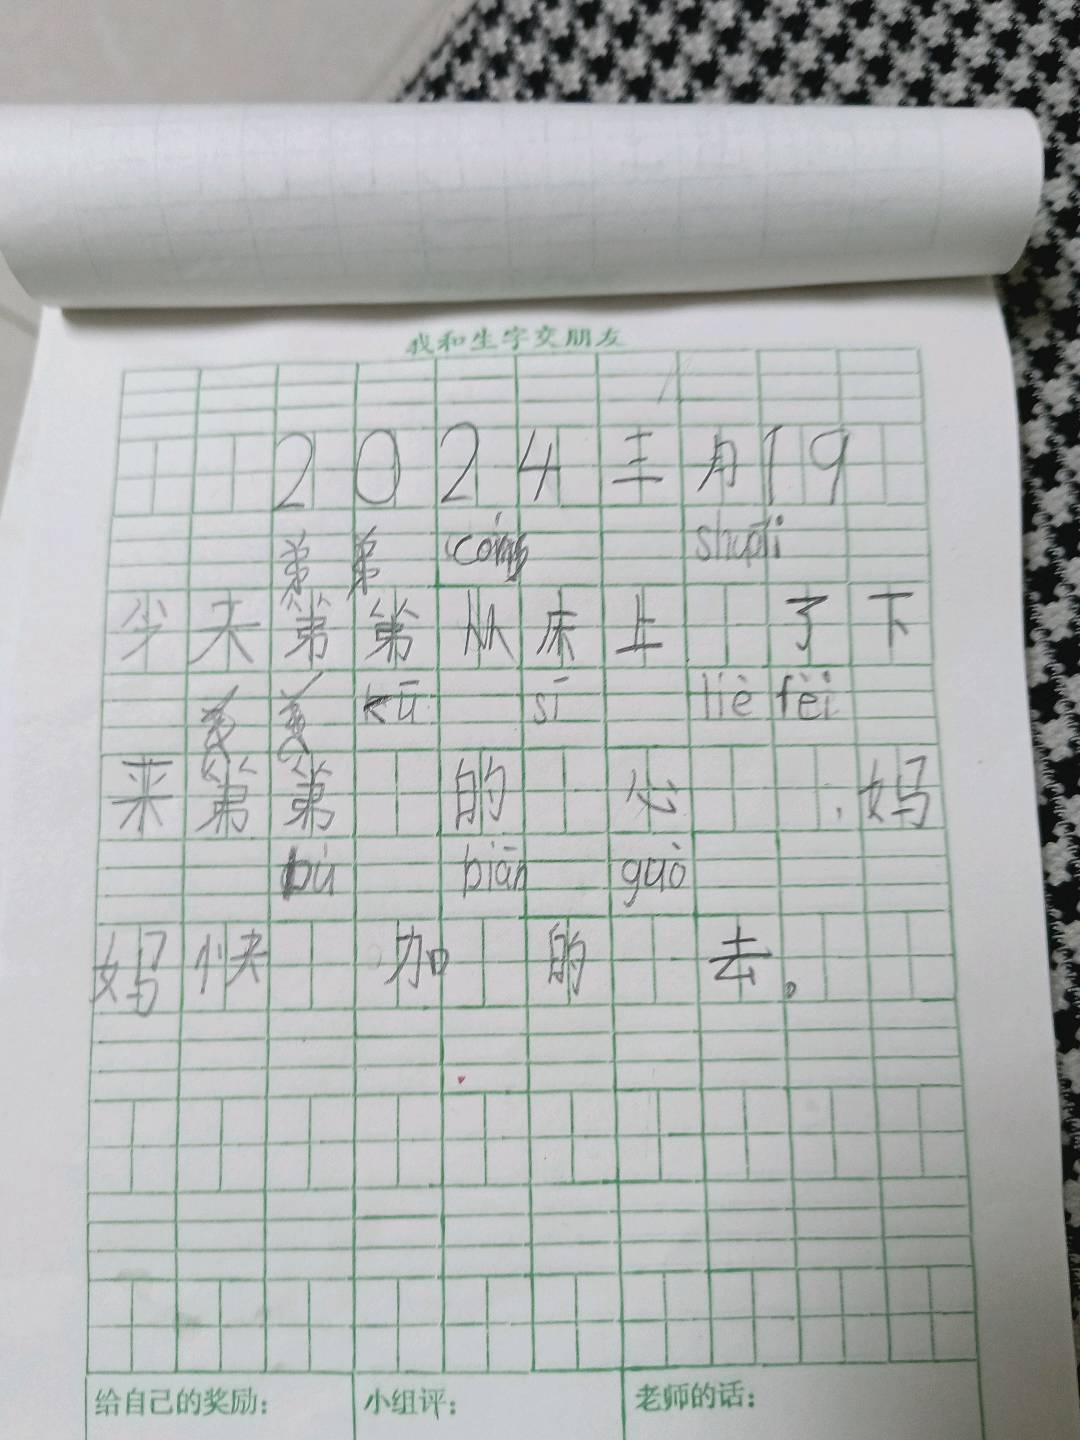 我和生字交朋友
2024三月19
弟弟 cóng shuāi
今天第第从床上 了下
kū sī liè fèi
来第第 的 心 , 妈
bù biān guò
妈快 加 的 去。
给自己的奖励: 小组评: 老师的话: